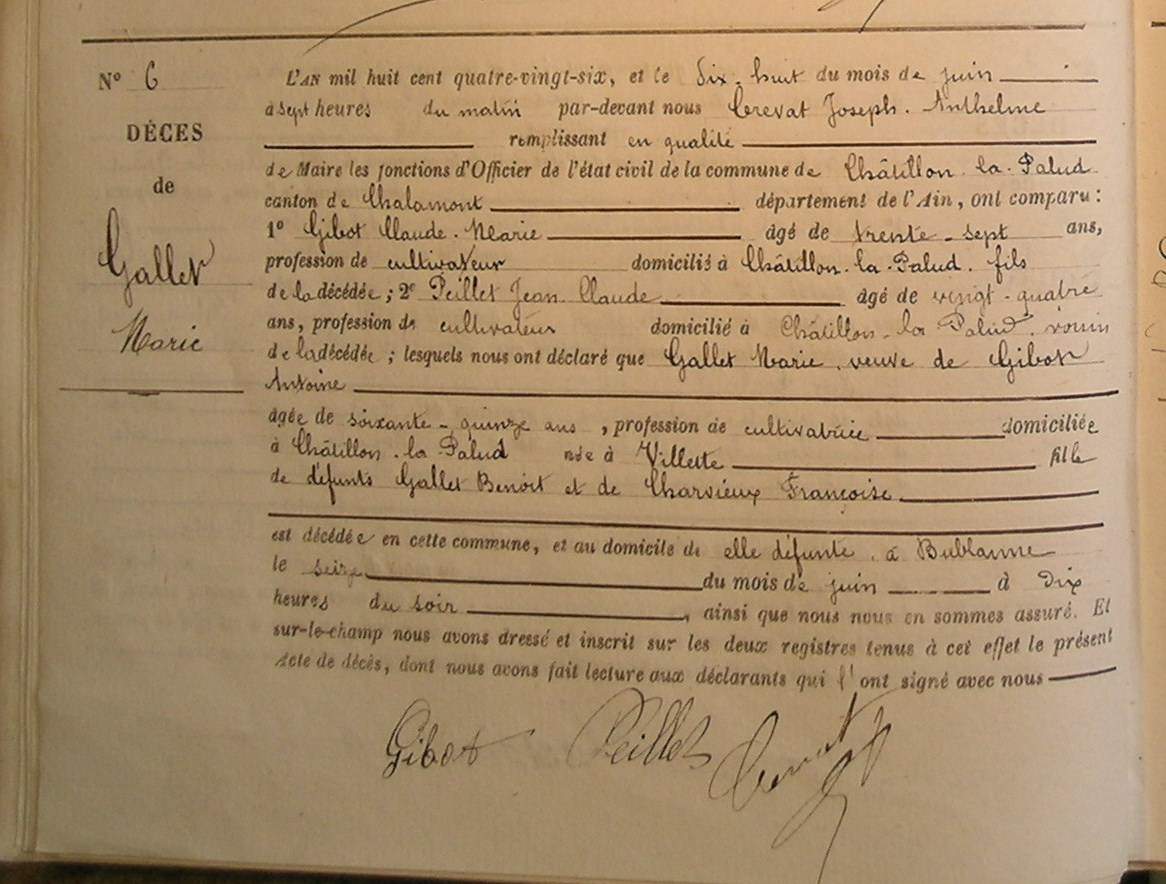 N° 6
DÉCES
de
Gallet
Marie
L'AN mil huit cent quatre-vingt-six, et le dix-huit du mois de juin
à sept heures du matin par-devant nous Crevat Joseph-Anthelme
remplissant en qualité
de Maire les fonctions d'Officier de l'état civil de la commune de Châtillon-la-Palud
canton de Chalamont département de l'Ain, ont comparu :
1° Gibot Claude-Marie âgé de trente-sept ans,
profession de cultivateur domicilié à Châtillon-la-Palud, fils
de la décédée ; 2° Peillet Jean Claude âgé de vingt-quatre
ans, profession de cultivateur domicilié à Châtillon-la-Palud, voisin
de la décédée ; lesquels nous ont déclaré que Gallet Marie, veuve de Gibot
Antoine
âgée de soixante-quinze ans, profession de cultivatrice domiciliée
à Châtillon-la-Palud née à Villette fille
de défunts Gallet Benoit et de Charvieux Françoise
est décédée en cette commune, et au domicile de elle défunte, à Bublanne
le seize du mois de juin à dix
heures du soir, ainsi que nous nous en sommes assuré. Et
sur-le-champ nous avons dressé et inscrit sur les deux registres tenus à cet effet le présent
Acte de décès, dont nous avons fait lecture aux déclarants qui l'ont signé avec nous
Gibot Peillet Crevat